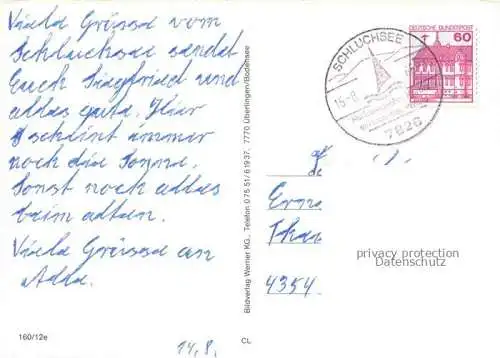 Viele Grüsse vom
Schluchsee sendet
Euch Siegfried und
alles gute. Hier
scheint immer
noch die Sonne.
Sonst noch alles
beim alten.
Viele Grüsse an
Alle.
160/12e
14.8.
CL
Bildverlag Werner KG., Telefon 0 75 51/6 19 37, 7770 Überlingen/Bodensee
SCHLUCHSEE
15.-8.
7826
DEUTSCHE BUNDESPOST
60
4354
privacy protection
Datenschutz